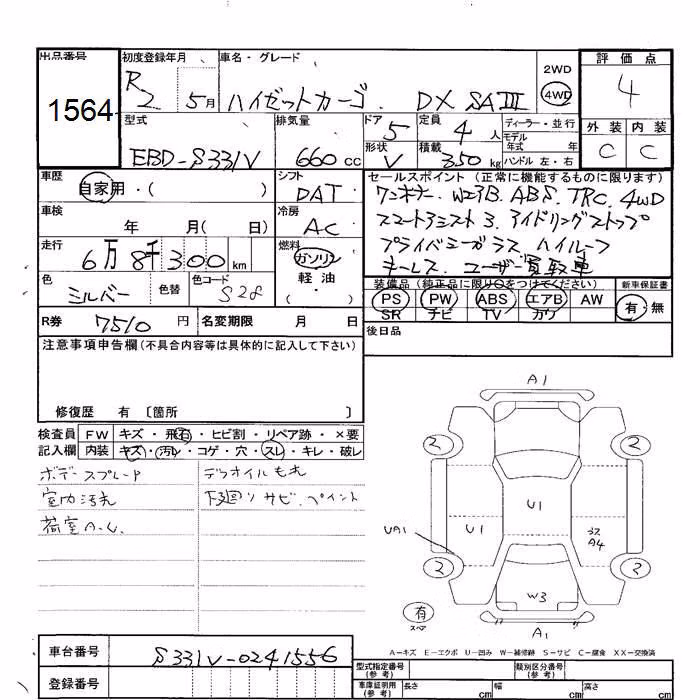 出品番号 初度登録年月 車名・グレード 評価点
1564 R2 5月 ハイゼットカーゴ. DX SAIII 2WD 4WD 4
型式 排気量 ドア 定員 ディーラー・並行 外装 内装
EBD-S331V 660cc 5 4人 モデル年式 年 C C
形状 積載 ハンドル 左・右
V 350kg
車歴 シフト セールスポイント(正常に機能するものに限ります)
自家用・( ) DAT ワンオーナー. WエアB. ABS. TRC. 4WD
車検 冷房 スマートアシスト3. アイドリングストップ
年 月( 日) AC プライバシーガラス ハイルーフ
走行 燃料 キーレス. ユーザー買取車
6万8千300km ガソリン
軽油
( )
色 色替 色コード 装備品(純正品に限り○をつけてください) 新車保証書
シルバー S28 PS PW ABS エアB AW 有・無
SR ナビ TV カワ
R券 7510円 名変期限 月 日 後日品
注意事項申告欄(不具合内容等は具体的に記入して下さい)
修復歴 有 〔箇所 〕
検査員記入欄 FW キズ・飛石・ヒビ割・リペア跡・×要
内装 キズ・汚レ・コゲ・穴・スレ・キレ・破レ
ボデースプレード デフオイルもれ
室内汚れ 下廻りサビ.ペイント
荷室A.U.
A1
2 2
U1
UA1 U1 A4
2 2
W3
有
スペア
A1
A-キズ E-エクボ U-凹み W-補修跡 S-サビ C-腐食 XX-交換済
車台番号 S331V-0241556
登録番号
型式指定番号(参考) 類別区分番号(参考)
車庫証明用(参考) 長さ cm 幅 cm 高さ cm